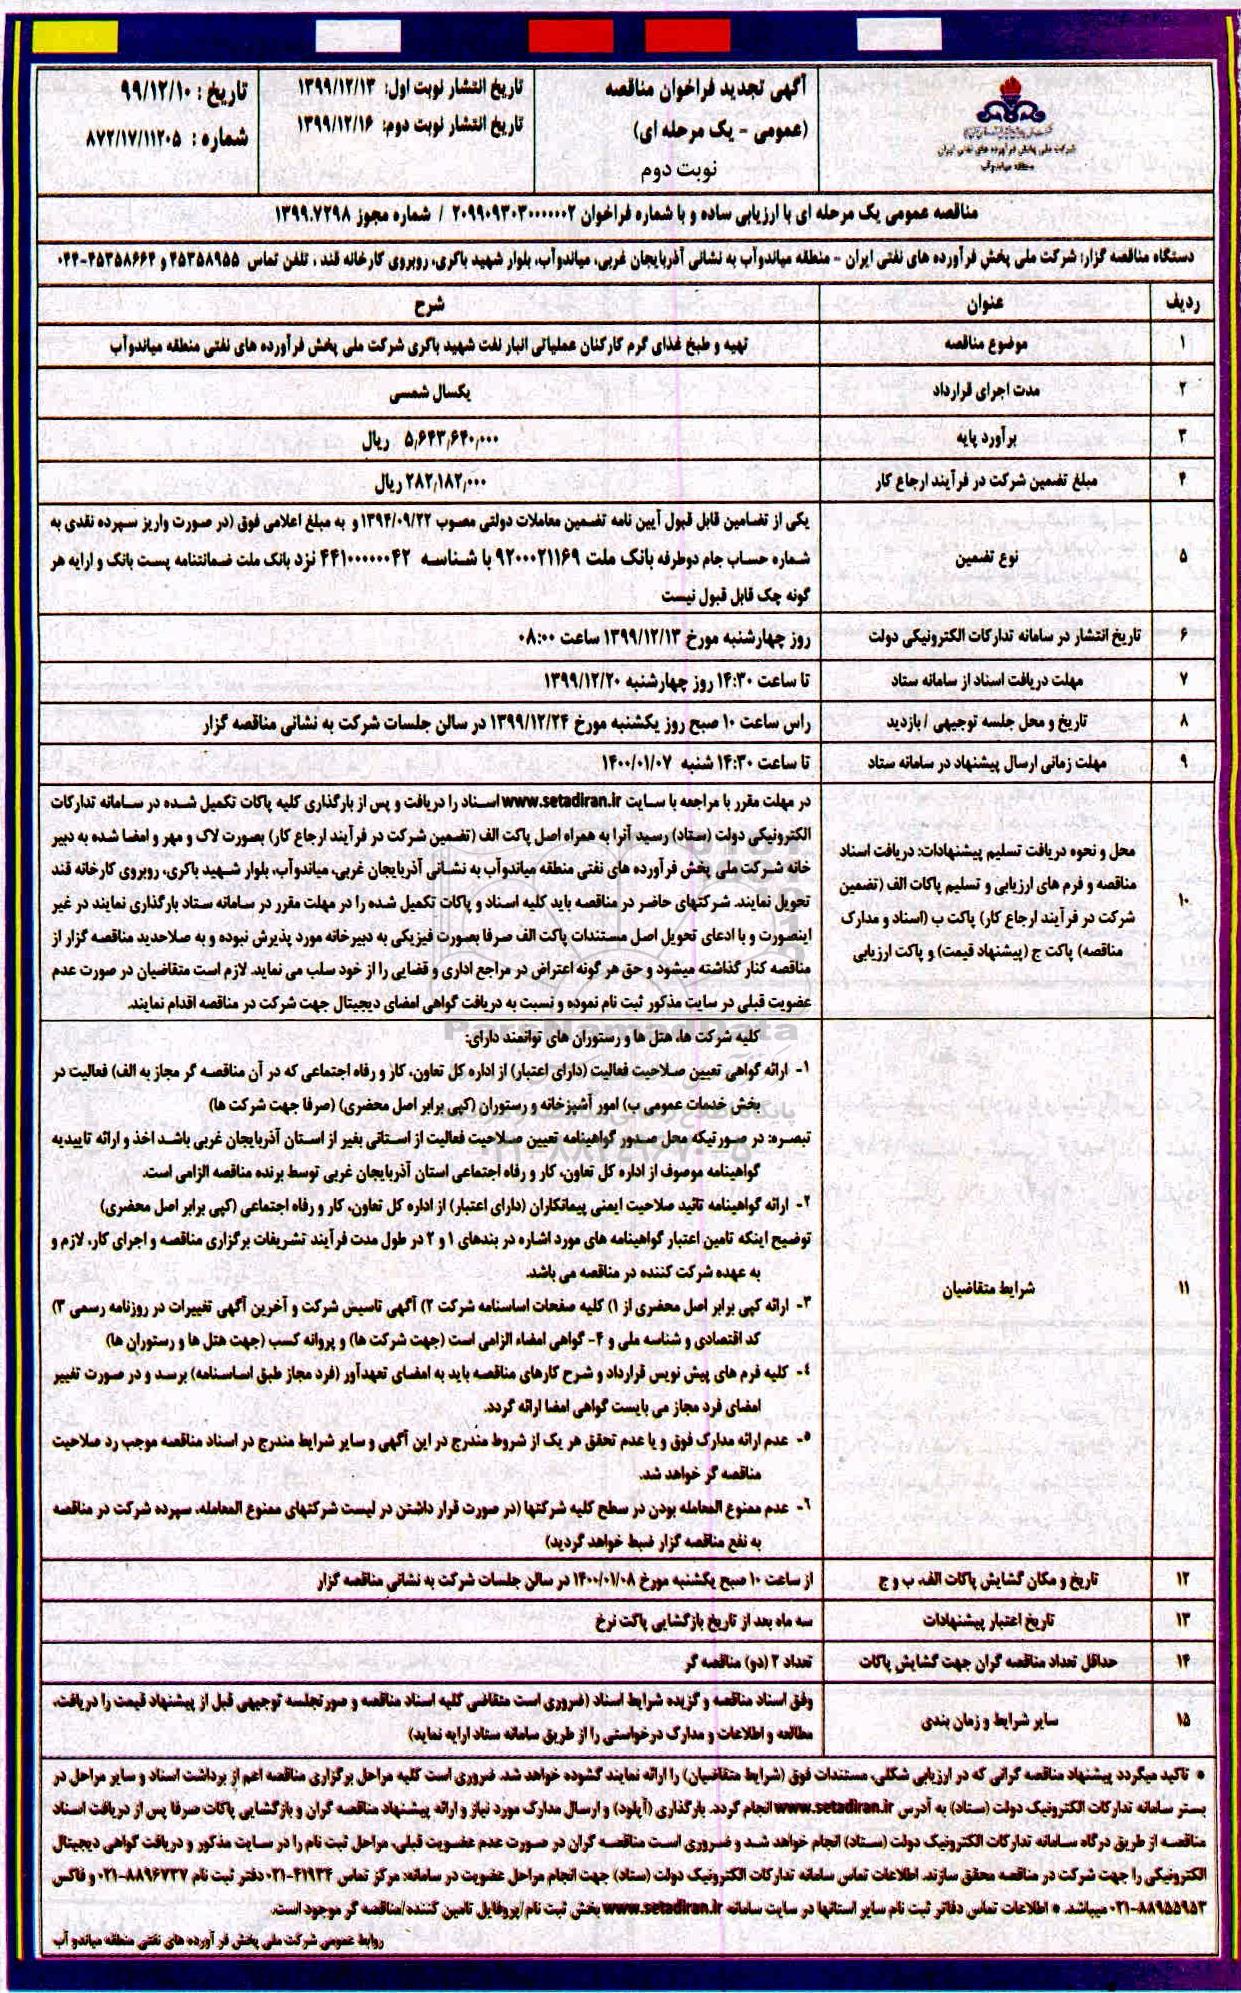 شرکت ملی پخش فرآورده های نفتی ایران
منطقه میاندوآب
آگهی تجدید فراخوان مناقصه
(عمومی - یک مرحله ای)
نوبت دوم
تاریخ انتشار نوبت اول: ۱۳۹۹/۱۲/۱۳
تاریخ انتشار نوبت دوم: ۱۳۹۹/۱۲/۱۶
تاریخ : ۹۹/۱۲/۱۰
شماره : ۸۷۲/۱۷/۱۱۲۰۵
مناقصه عمومی یک مرحله ای با ارزیابی ساده و با شماره فراخوان ۲۰۹۹۰۹۳۰۳۰۰۰۰۰۰۲ / شماره مجوز ۱۳۹۹.۷۲۹۸
دستگاه مناقصه گزار: شرکت ملی پخش فرآورده های نفتی ایران - منطقه میاندوآب به نشانی آذربایجان غربی، میاندوآب، بلوار شهید باکری، روبروی کارخانه قند ، تلفن تماس ۴۵۳۵۸۹۵۵ و ۴۵۳۵۸۶۶۴-۰۴۴
ردیف عنوان شرح
۱ موضوع مناقصه تهیه و طبخ غذای گرم کارکنان عملیاتی انبار نفت شهید باکری شرکت ملی پخش فرآورده های نفتی منطقه میاندوآب
۲ مدت اجرای قرارداد یکسال شمسی
۳ برآورد پایه ۵,۶۴۳,۶۴۰,۰۰۰ ریال
۴ مبلغ تضمین شرکت در فرآیند ارجاع کار ۲۸۲,۱۸۲,۰۰۰ ریال
۵ نوع تضمین یکی از تضامین قابل قبول آیین نامه تضمین معاملات دولتی مصوب ۱۳۹۴/۰۹/۲۲ و به مبلغ اعلامی فوق (در صورت واریز سپرده نقدی به
شماره حساب جام دوطرفه بانک ملت ۹۲۰۰۰۲۱۱۶۹ با شناسه ۴۴۱۰۰۰۰۰۰۴۲ نزد بانک ملت ضمانتنامه پست بانک و ارایه هر
گونه چک قابل قبول نیست
۶ تاریخ انتشار در سامانه تدارکات الکترونیکی دولت روز چهارشنبه مورخ ۱۳۹۹/۱۲/۱۳ ساعت ۰۸:۰۰
۷ مهلت دریافت اسناد از سامانه ستاد تا ساعت ۱۴:۳۰ روز چهارشنبه ۱۳۹۹/۱۲/۲۰
۸ تاریخ و محل جلسه توجیهی / بازدید راس ساعت ۱۰ صبح روز یکشنبه مورخ ۱۳۹۹/۱۲/۲۴ در سالن جلسات شرکت به نشانی مناقصه گزار
۹ مهلت زمانی ارسال پیشنهاد در سامانه ستاد تا ساعت ۱۴:۳۰ شنبه ۱۴۰۰/۰۱/۰۷
۱۰ محل و نحوه دریافت تسلیم پیشنهادات: دریافت اسناد
مناقصه و فرم های ارزیابی و تسلیم پاکات الف (تضمین
شرکت در فرآیند ارجاع کار) پاکت ب (اسناد و مدارک
مناقصه) پاکت ج (پیشنهاد قیمت) و پاکت ارزیابی
در مهلت مقرر با مراجعه با سایت www.setadiran.ir اسناد را دریافت و پس از بارگذاری کلیه پاکات تکمیل شده در سامانه تدارکات
الکترونیکی دولت (ستاد) رسید آنرا به همراه اصل پاکت الف (تضمین شرکت در فرآیند ارجاع کار) بصورت لاک و مهر و امضا شده به دبیر
خانه شرکت ملی پخش فرآورده های نفتی منطقه میاندوآب به نشانی آذربایجان غربی، میاندوآب، بلوار شهید باکری، روبروی کارخانه قند
تحویل نمایند. شرکتهای حاضر در مناقصه باید کلیه اسناد و پاکات تکمیل شده را در مهلت مقرر در سامانه ستاد بارگذاری نمایند در غیر
اینصورت و با ادعای تحویل اصل مستندات پاکت الف صرفا بصورت فیزیکی به دبیرخانه مورد پذیرش نبوده و به صلاحدید مناقصه گزار از
مناقصه کنار گذاشته میشود و حق هر گونه اعتراض در مراجع اداری و قضایی را از خود سلب می نماید. لازم است متقاضیان در صورت عدم
عضویت قبلی در سایت مذکور ثبت نام نموده و نسبت به دریافت گواهی امضای دیجیتال جهت شرکت در مناقصه اقدام نمایند.
۱۱ شرایط متقاضیان
کلیه شرکت ها، هتل ها و رستوران های توانمند دارای:
۱- ارائه گواهی تعیین صلاحیت فعالیت (دارای اعتبار) از اداره کل تعاون، کار و رفاه اجتماعی که در آن مناقصه گر مجاز به الف) فعالیت در
بخش خدمات عمومی ب) امور آشپزخانه و رستوران (کپی برابر اصل محضری) (صرفا جهت شرکت ها)
تبصره: در صورتیکه محل صدور گواهینامه تعیین صلاحیت فعالیت از استانی بغیر از استان آذربایجان غربی باشد اخذ و ارائه تاییدیه
گواهینامه موصوف از اداره کل تعاون، کار و رفاه اجتماعی استان آذربایجان غربی توسط برنده مناقصه الزامی است.
۲- ارائه گواهینامه تائید صلاحیت ایمنی پیمانکاران (دارای اعتبار) از اداره کل تعاون، کار و رفاه اجتماعی (کپی برابر اصل محضری)
توضیح اینکه تامین اعتبار گواهینامه های مورد اشاره در بندهای ۱ و ۲ در طول مدت فرآیند تشریفات برگزاری مناقصه و اجرای کار، لازم و
به عهده شرکت کننده در مناقصه می باشد.
۳- ارائه کپی برابر اصل محضری از ۱) کلیه صفحات اساسنامه شرکت ۲) آگهی تاسیس شرکت و آخرین آگهی تغییرات در روزنامه رسمی ۳)
کد اقتصادی و شناسه ملی و ۴- گواهی امضاء الزامی است (جهت شرکت ها) و پروانه کسب (جهت هتل ها و رستوران ها)
۴- کلیه فرم های پیش نویس قرارداد و شرح کارهای مناقصه باید به امضای تعهدآور (فرد مجاز طبق اساسنامه) برسد و در صورت تغییر
امضای فرد مجاز می بایست گواهی امضا ارائه گردد.
۵- عدم ارائه مدارک فوق و یا عدم تحقق هر یک از شروط مندرج در این آگهی و سایر شرایط مندرج در اسناد مناقصه موجب رد صلاحیت
مناقصه گر خواهد شد.
۶- عدم ممنوع المعامله بودن در سطح کلیه شرکتها (در صورت قرار داشتن در لیست شرکتهای ممنوع المعامله، سپرده شرکت در مناقصه
به نفع مناقصه گزار ضبط خواهد گردید)
۱۲ تاریخ و مکان گشایش پاکات الف، ب و ج از ساعت ۱۰ صبح یکشنبه مورخ ۱۴۰۰/۰۱/۰۸ در سالن جلسات شرکت به نشانی مناقصه گزار
۱۳ تاریخ اعتبار پیشنهادات سه ماه بعد از تاریخ بازگشایی پاکت نرخ
۱۴ حداقل تعداد مناقصه گران جهت گشایش پاکات تعداد ۲ (دو) مناقصه گر
۱۵ سایر شرایط و زمان بندی وفق اسناد مناقصه و گزیده شرایط اسناد (ضروری است متقاضی کلیه اسناد مناقصه و صورتجلسه توجیهی قبل از پیشنهاد قیمت را دریافت،
مطالعه و اطلاعات و مدارک درخواستی را از طریق سامانه ستاد ارایه نماید)
* تاکید میگردد پیشنهاد مناقصه گرانی که در ارزیابی شکلی، مستندات فوق (شرایط متقاضیان) را ارائه نمایند گشوده خواهد شد. ضروری است کلیه مراحل برگزاری مناقصه اعم از برداشت اسناد و سایر مراحل در
بستر سامانه تدارکات الکترونیک دولت (ستاد) به آدرس www.setadiran.ir انجام گردد. بارگذاری (آپلود) و ارسال مدارک مورد نیاز و ارائه پیشنهاد مناقصه گران و بازگشایی پاکات صرفا پس از دریافت اسناد
مناقصه از طریق درگاه سامانه تدارکات الکترونیک دولت (ستاد) انجام خواهد شد و ضروری است مناقصه گران در صورت عدم عضویت قبلی، مراحل ثبت نام را در سایت مذکور و دریافت گواهی دیجیتال
الکترونیکی را جهت شرکت در مناقصه محقق سازند. اطلاعات تماس سامانه تدارکات الکترونیک دولت (ستاد) جهت انجام مراحل عضویت در سامانه: مرکز تماس ۴۱۹۳۴-۰۲۱ دفتر ثبت نام ۸۸۹۶۷۳۷-۰۲۱ و فاکس
۸۸۹۵۵۹۵۳-۰۲۱ میباشد. * اطلاعات تماس دفاتر ثبت نام سایر استانها در سایت سامانه www.setadiran.ir بخش ثبت نام/پروفایل تامین کننده/مناقصه گر موجود است.
روابط عمومی شرکت ملی پخش فرآورده های نفتی منطقه میاندوآب